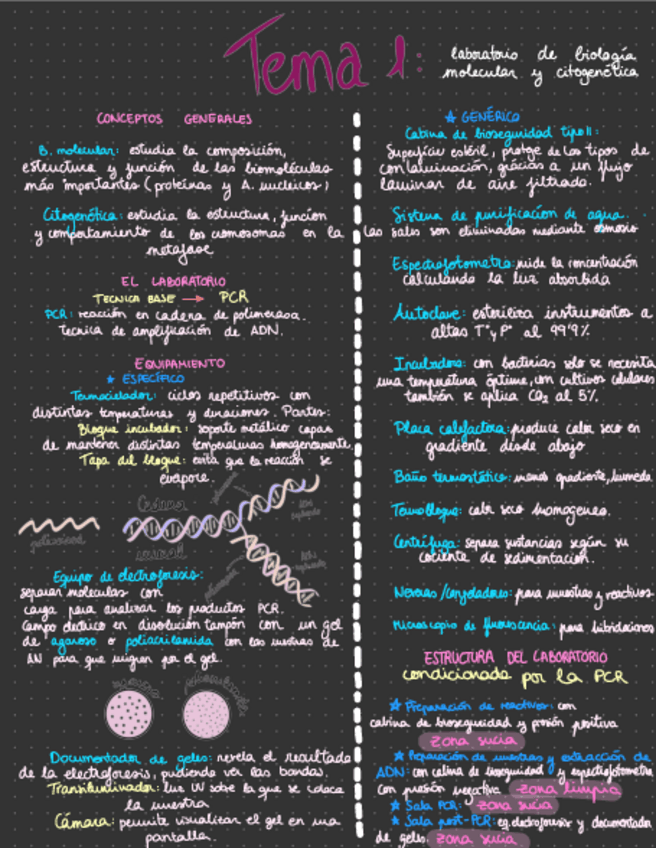 Tema 1:
laboratorio de biología
molecular y citogenética
CONCEPTOS GENERALES
B. molecular: estudia la composición,
estructura y función de las biomoléculas
más importantes (proteínas y A. nucleicos)
Citogenética: estudia la estructura, función
y comportamiento de los cromosomas en la
metafase
EL LABORATORIO
TECNICA BASE → PCR
PCR: reacción en cadena de polimerasa.
tecnica de amplificación de ADN.
EQUIPAMIENTO
★ ESPECÍFICO
Termociclador: ciclos repetitivos con
distintas temperaturas y duraciones. Partes:
Bloque incubador: soporte metálico capaz
de mantener distintas temperaturas homogeneamente.
Tapa del bloque: evita que la reacción se
evapore.
Cadena
polimerasa
Equipo de electroforesis:
separar moleculas con
carga para analizar los productos PCR.
Campo electrico en disolución tampón con un gel
de agarosa o poliacrilamida con las muestras de
AN para que migren por el gel.
Documentador de geles: revela el resultado
de la electroforesis, pudiendo ver las bandas.
Transiluminador: luz UV sobre la que se coloca
la muestra
Cámara: permite visualizar el gel en una
pantalla.
★ GENÉRICO
Cabina de bioseguridad tipo II:
Superficie estéril, protege de los tipos de
contaminación, gracias a un flujo
laminar de aire filtrado.
Sistema de purificación de agua.
las sales son eliminadas mediante osmosis
Espectrofotometro: mide la concentración
calculando la luz absorbida
Autoclave: esteriliza instrumentos a
altas Tª y P° al 99'9%
Incubadora: con bacterias solo se necesita
una temperatura óptima, con cultivos celulares
también se aplica CO2 al 5%.
Placa calefactora: produce calor seco en
gradiente desde abajo
Baño termostático: menos gradiente, humeda
Termobloque: calor seco homogeneo.
Centrífuga: separa sustancias según su
cociente de sedimentación.
Neveras/Congeladores: para muestras y reactivos
Microscopio de fluorescencia: para hibridaciones
ESTRUCTURA DEL LABORATORIO
condicionada por la PCR
★ Preparación de reactivos: con
cabina de bioseguridad y presión positiva
zona sucia
★ Preparación de muestras y extracción de
ADN: con cabina de bioseguridad y espectrofotometro
con presión negativa zona limpia
★ Sala PCR: zona sucia
★ Sala post-PCR: eq. electroforesis y documentador
de geles. zona sucia